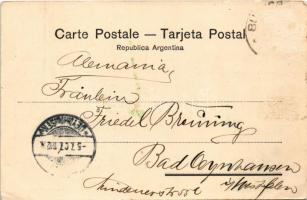 Carte Postale — Tarjeta Postal
Republica Argentina
Alemania,
Fräulein
Friedel Breuning
Bad Oeynhausen
i/Westfalen